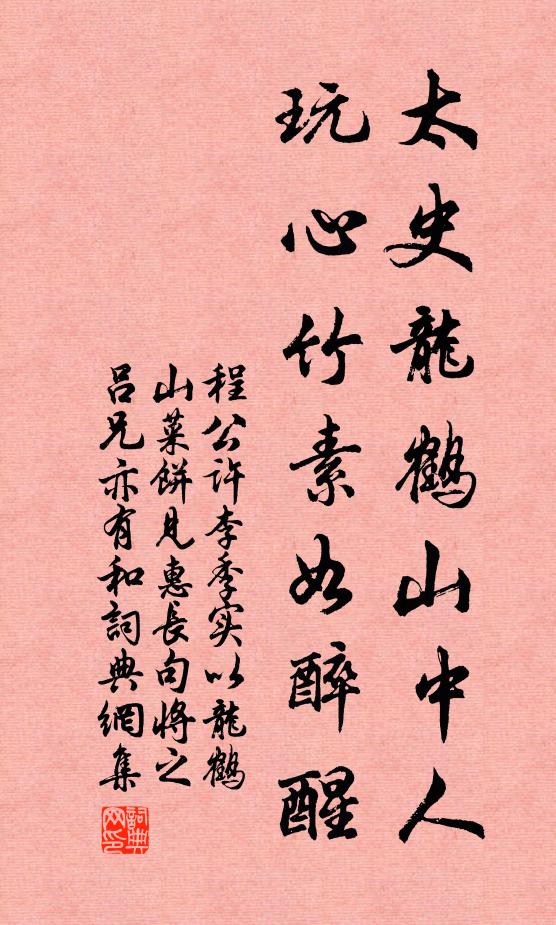 太史龍鶴山中人
玩心竹素如醉醒
程公许李季实以龍鶴
山菜餅見惠長句將之
吕兄亦有和詞典網集
詞典网印